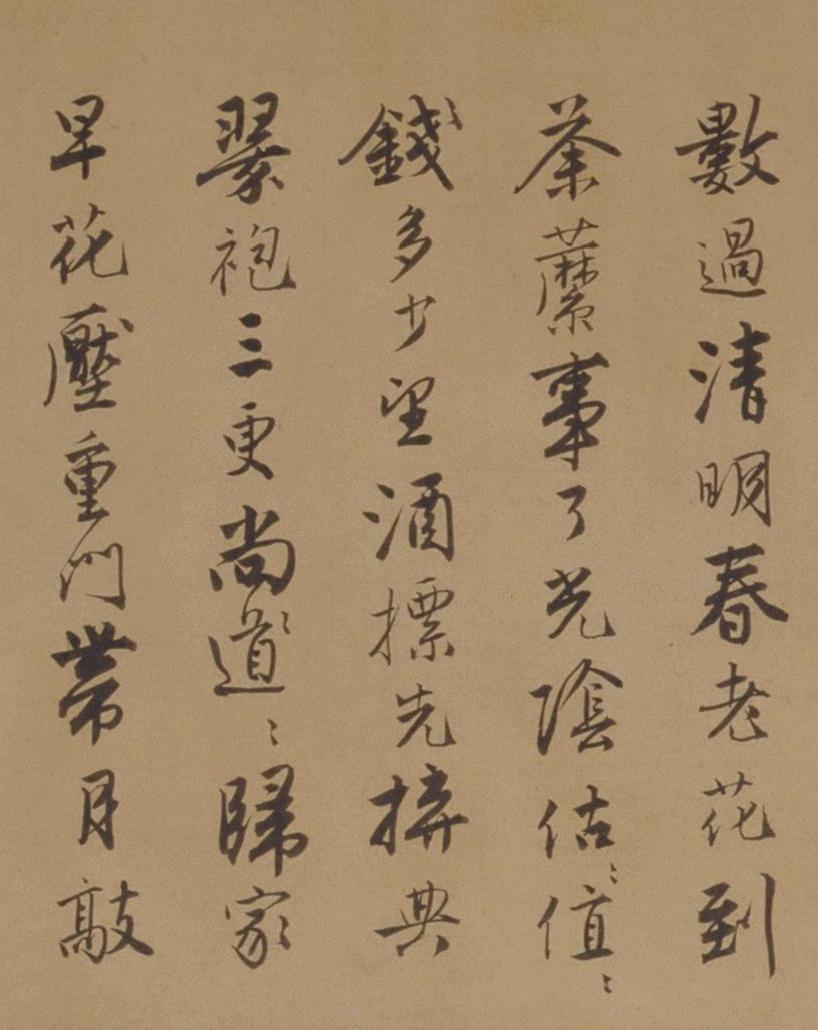 數過清明春老花到
荼䕷事了光陰估值
錢多少望酒摽先拚典
翠袍三更尚道歸家
早花壓重門帶月敲